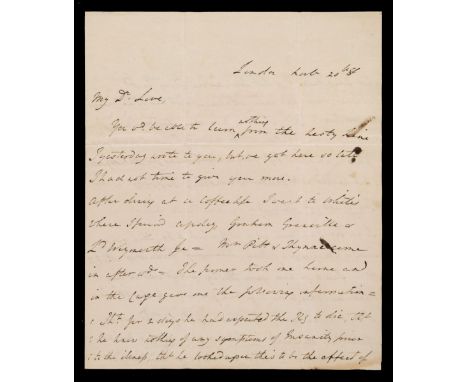 London
My Dr. Love,
You wd. be able to learn nothing from the hasty line
I yesterday wrote to you, but we got here so late
I had not time to give you more.
After dining at a Coffee I went to White's
where I found Apsley Graham Granville &
Ld. Weymouth &c = Mr. Pitt & Thynne came
in after wds. = The former took me home and
in the Cage gave me the following information =
: Tht. for 2 days he had expected the Kg to die, tht
: he knew nothing of any symptoms of Insanity prior
: to the illness, tht he looked upon this to be the effect of